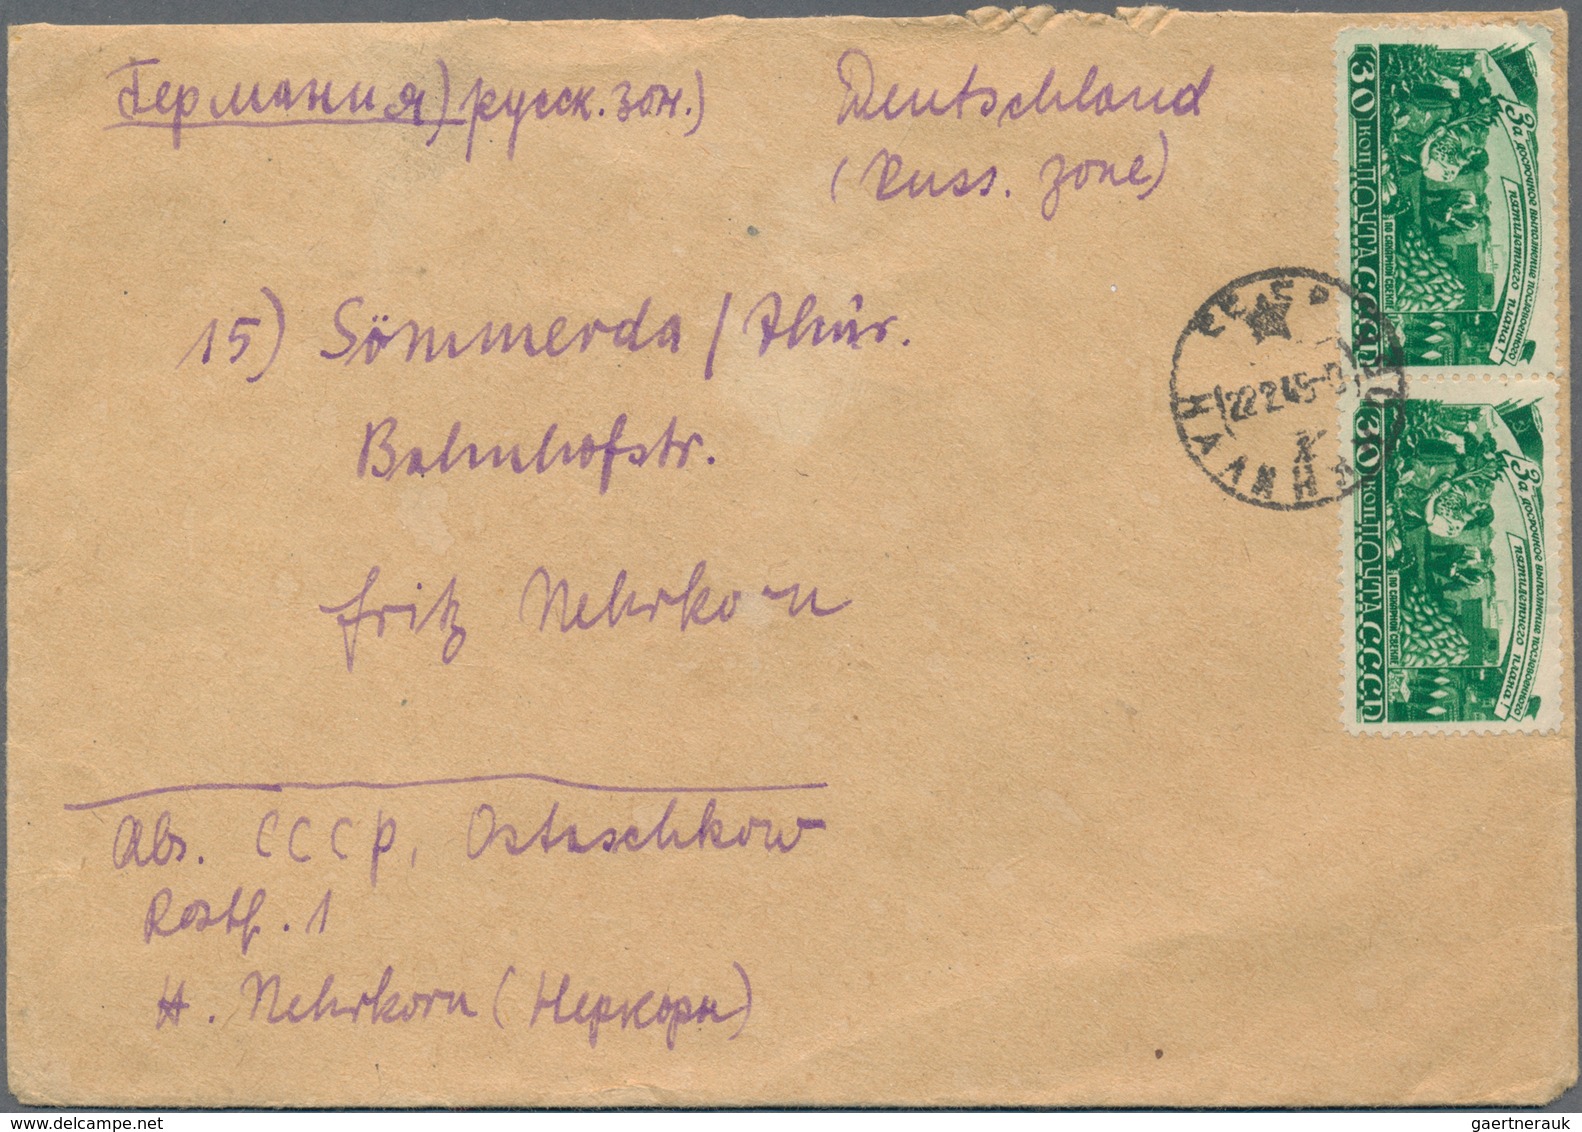 Германия) русск. зон.)
Deutschland
(Russ. zone)
15) Sömmerda / Thür.
Bahnhofstr.
Fritz Nehrkorn
Abs. СССР, Ostaschkow
Postf. 1
H. Nehrkorn (Неркорн)
30 КОП. ПОЧТА СССР
За досрочное выполнение послевоенного
пятилетнего плана!
ПО САХАРНОЙ СВЕКЛЕ
30 КОП. ПОЧТА СССР
За досрочное выполнение послевоенного
пятилетнего плана!
ПО САХАРНОЙ СВЕКЛЕ
СССР
gaertnerauk
www.delcampe.net